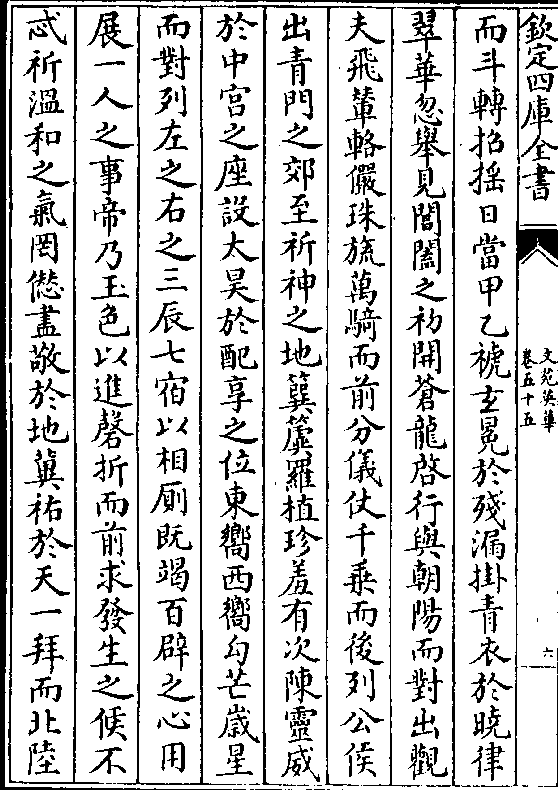 欽定四庫全書
文苑英華
卷五十五
六
而斗轉招摇日當甲乙褫玄冕於殘漏掛青衣於曉律
翠華忽舉見閶闔之初開蒼龍啓行與朝陽而對出觀
夫飛葷輅儼珠旒萬騎而前分儀仗千乗而後列公侯
出青門之郊至祈神之地簨簴羅植珍羞有次陳靈威
於中宫之座設太昊於配享之位東嚮西嚮勾芒歲星
而對列左之右之三辰七宿以相厠既竭百辟之心用
展一人之事帝乃玉色以進磬折而前求發生之候不
忒祈溫和之氣罔愆盡敬於地冀祐於天一拜而北陸